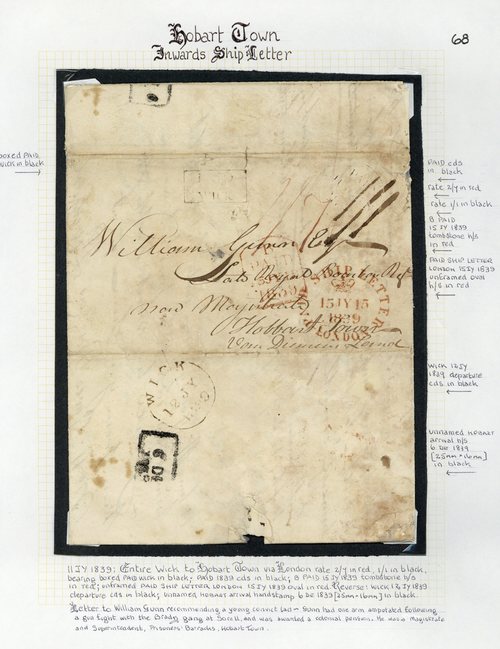 Hobart Town
Inwards Ship Letter
68
boxed PAID
WICK in black
PAID cds
in black
rate 2/7 in red
rate 1/1 in black
B PAID
15 JY 1839
tombstone h/s
in red
PAID SHIP LETTER
LONDON 15 JY 1839
unframed oval
h/s in red
WICK 12 JY
1839 departure
cds in black
unnamed HOBART
arrival h/s
6 DE 1839
[25mm × 16mm]
in black
William Gunn Esqr
Late
now Magistrate
Hobbart Town
Van Diemens Land
SHIP LETTER
15 JY 15
1839
LONDON
WICK
11 JY 1839: Entire Wick to Hobart Town via London rate 2/7 in red, 1/1 in black,
bearing boxed PAID WICK in black; PAID 1839 cds in black; B PAID 15 JY 1839 tombstone h/s
in red; unframed PAID SHIP LETTER LONDON 15 JY 1839 oval in red. Reverse: WICK 12 JY 1839
departure cds in black; unnamed HOBART arrival handstamp 6 DE 1839 [25mm × 16mm] in black.
Letter to William Gunn recommending a young convict lad – Gunn had one arm amputated following
a gun fight with the Brady gang at Sorell, and was awarded a colonial pension. He was a magistrate
and Superintendent, Prisoners' Barracks, Hobart Town.